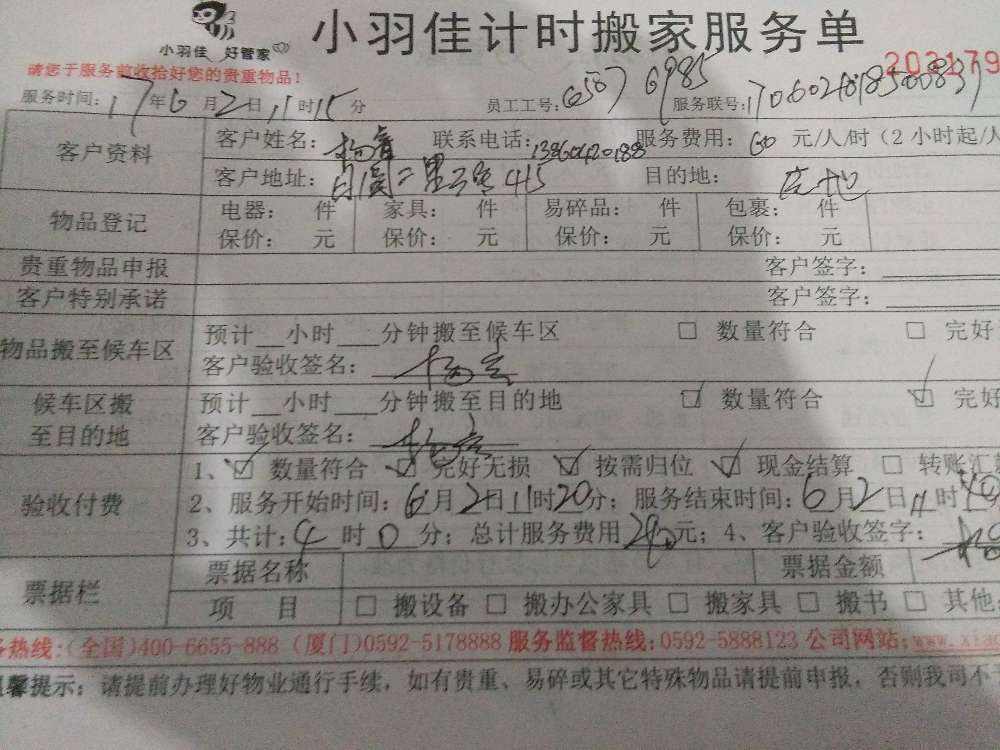 小羽佳 好管家
小羽佳计时搬家服务单
请您于服务前收拾好您的贵重物品！
服务时间：17年6月2日11时15分 员工工号： 服务联号：
客户资料
客户姓名： 联系电话：13860420188 服务费用：60 元/人/时（2小时起/人
客户地址： 二里 415 目的地：
物品登记
电器： 件 家具： 件 易碎品： 件 包裹： 件
保价： 元 保价： 元 保价： 元 保价： 元
贵重物品申报 客户签字：
客户特别承诺 客户签字：
物品搬至候车区
预计__小时___分钟搬至候车区 □ 数量符合 □ 完好
客户验收签名：
候车区搬
至目的地
预计__小时___分钟搬至目的地 ☑ 数量符合 ☑ 完好
客户验收签名：
验收付费
1、☑ 数量符合 ☑ 完好无损 ☑ 按需归位 ☑ 现金结算 □ 转账汇
2、服务开始时间：6月2日11时20分；服务结束时间：6月2日 时
3、共计：4时0分；总计服务费用240元；4、客户验收签字：
票据栏
票据名称 票据金额
项 目 □ 搬设备 □ 搬办公家具 □ 搬家具 □ 搬书 □ 其他
务热线：(全国)400-6655-888 (厦门)0592-5178888 服务监督热线：0592-5888123 公司网站：www.xia
温馨提示：请提前办理好物业通行手续，如有贵重、易碎或其它特殊物品请提前申报，否则我司不